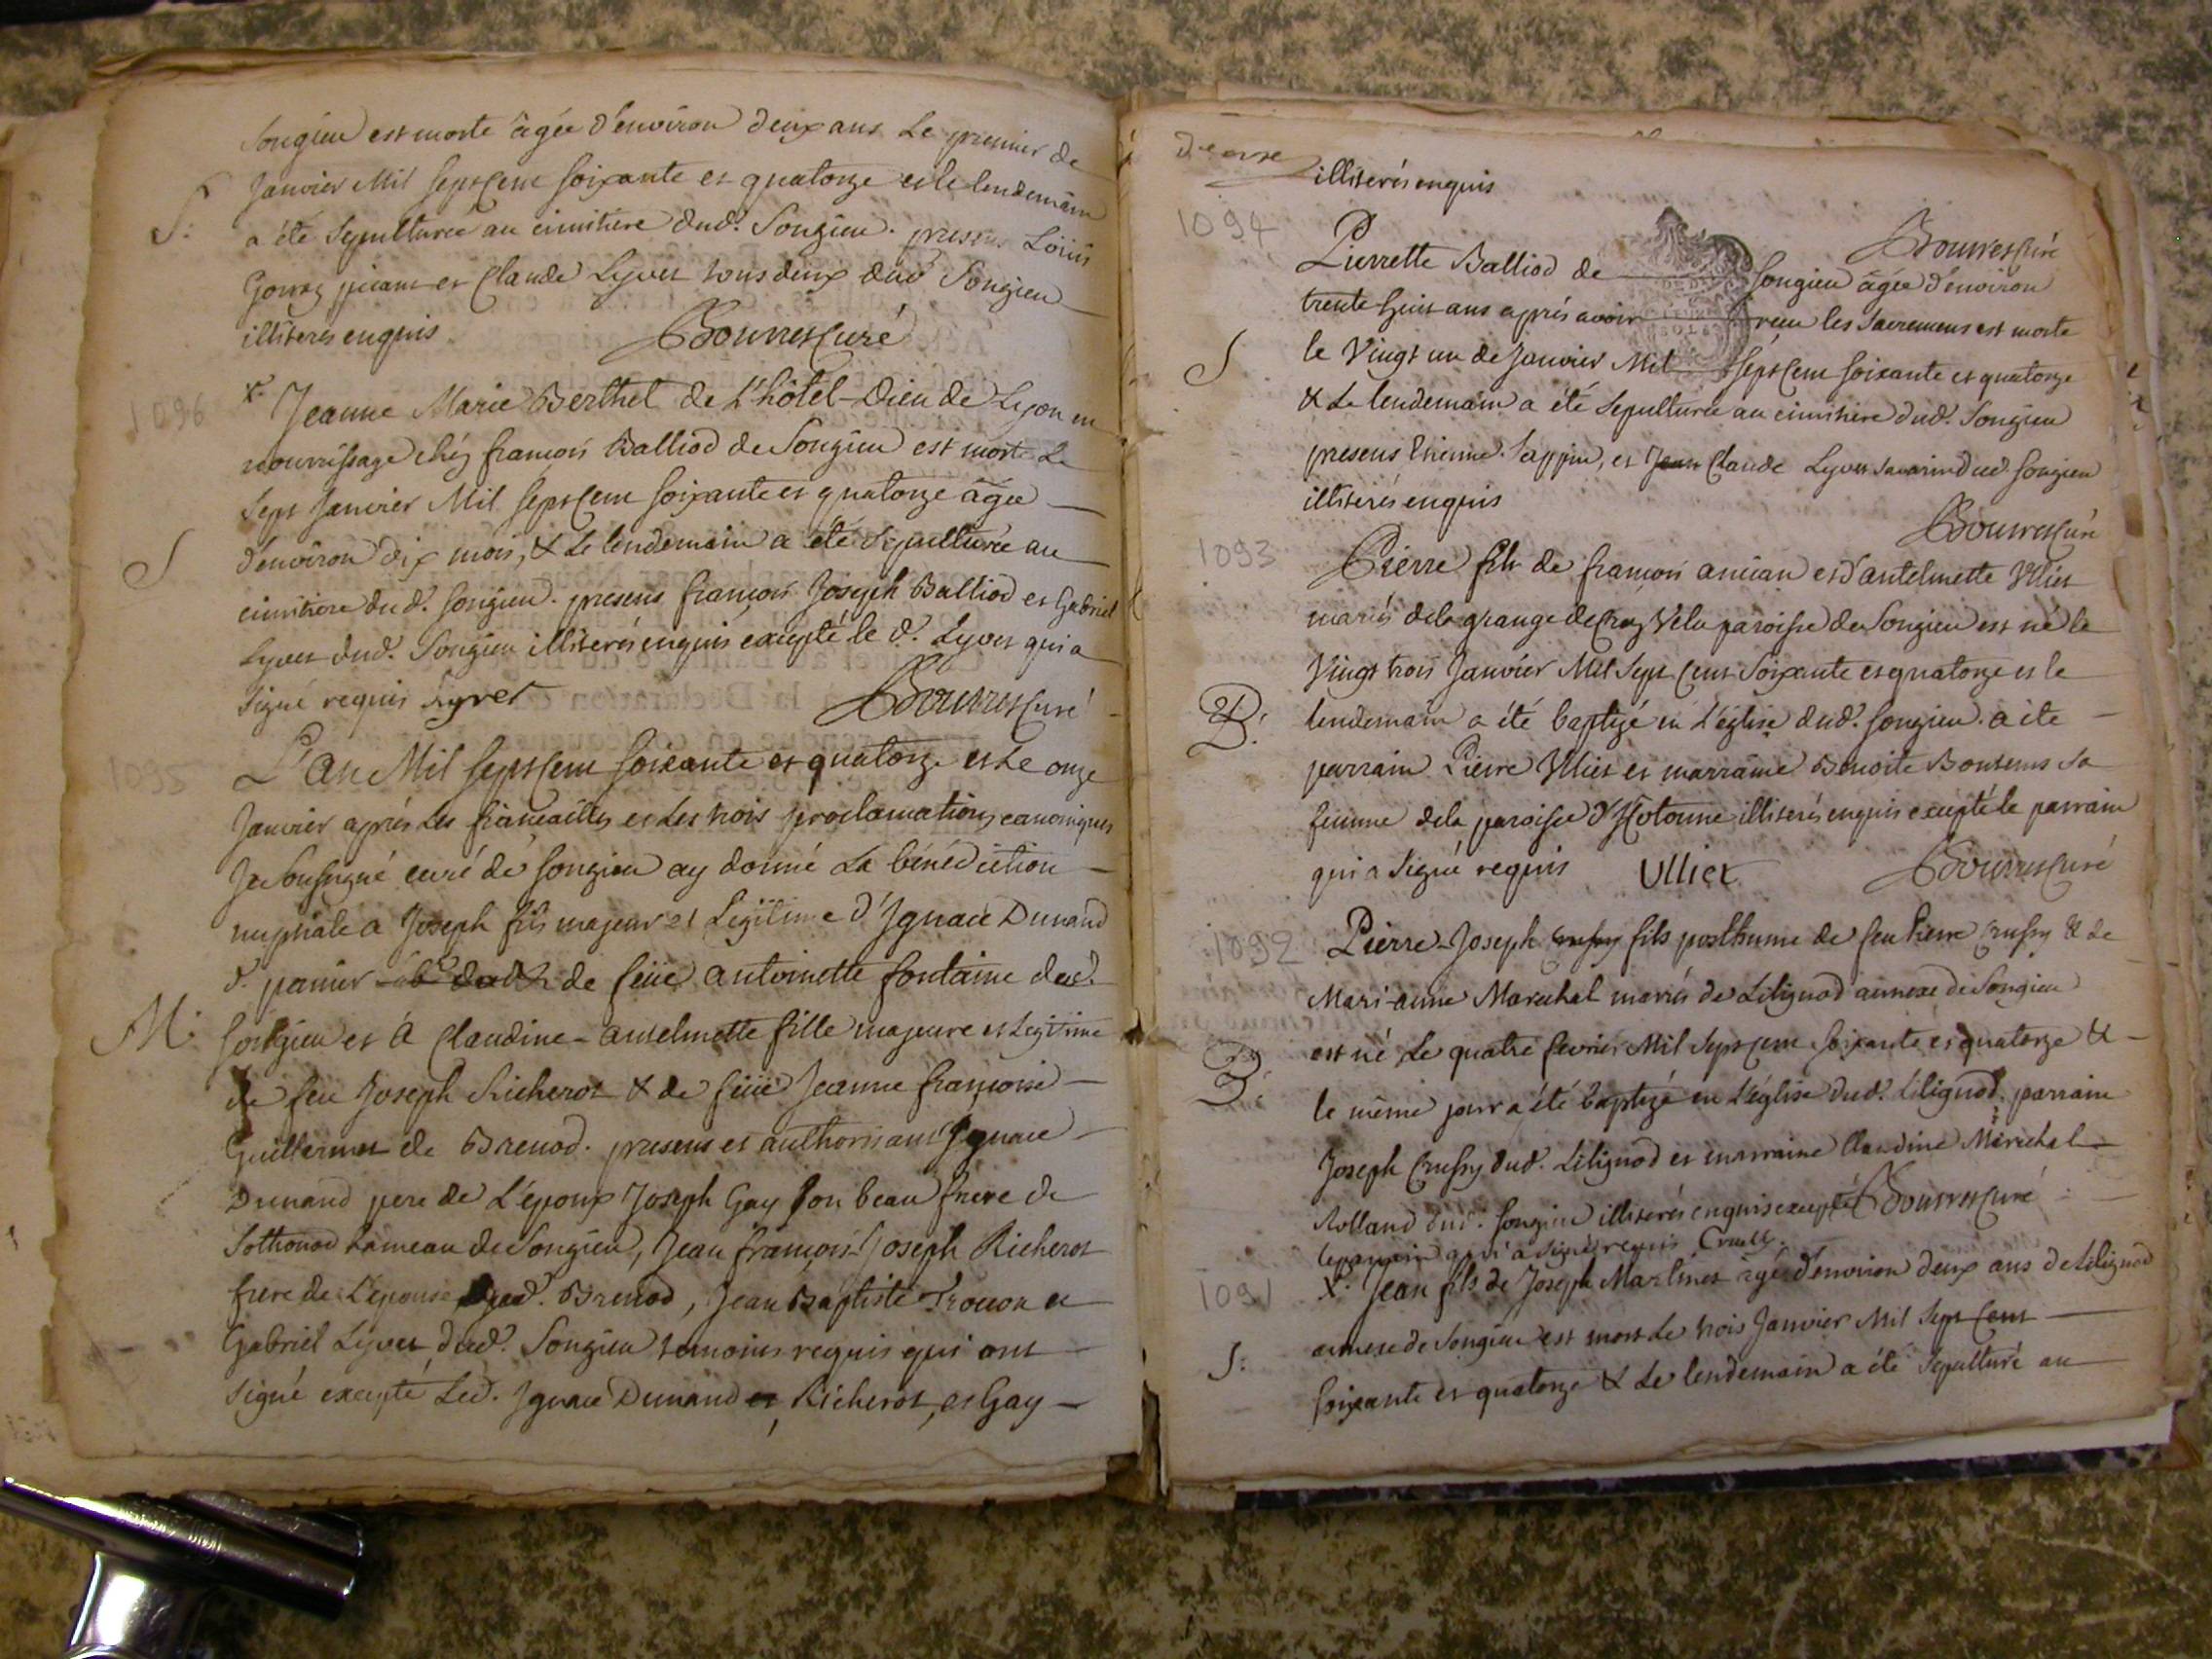 Songieu est morte âgée d'environ deux ans le premier de
Janvier Mil sept cent soixante et quatorze et le lendemain
S:
a été sepulturée au cimitiere dud. Songieu. presens Loüis
Gonraz et Claude Lyvet tous deux dud Songieu
illiterés enquis Bourret Curé
1096
x. Jeanne Marie Berthet de L'hôtel-Dieu de Lyon en
nourrissage chéz francois Balliod de Songieu est morte Le
Sept Janvier Mil sept cent soixante et quatorze âgée
S
d'environ dix mois, & Le lendemain a été sepulturée au
cimitiere dud. songieu. presens francois Joseph Balliod et Gabriel
Lyvet dud. Songieu illiterés enquis excepté le d. Lyvet qui a
signé requis Lyvet Bourret Curé
1095
L'an Mil sept cent soixante et quatorze et Le onze
Janvier aprés Les fiancailles et Les trois proclamations canoniques
Je soussigné curé de songieu ay donné La bénédiction
nuptiale a Joseph fils majeur et Legitime d'Ignace Dunand
d. panier de feüe antoinette fontaine dud.
M:
songieu et á Claudine-antelmette fille majeure et Legitime
de feu Joseph Richerot & de feüe Jeanne francoise
Guillermet de Brenod. presens et authorisans Ignace
Dunand pere de L'époux Joseph Gay son beau frere de
Sothonod hameau de Songieu, Jean francois Joseph Richerot
frere de L'epouse dud. Brenod, Jean Baptiste Trouon et
Gabriel Lyvet dud. Songieu temoins requis qui ont
signé excepté Led. Ignace Dunand et Richerot, et Gay
illiterés enquis
Bourret Curé
1094
Pierrette Balliod de songieu âgée d'environ
trente huit ans aprés avoir receu les sacremens est morte
S
le Vingt un de Janvier Mil sept cent soixante et quatorze
& Le lendemain a été sepulturée au cimitiere dud. Songieu
presens Etienne Sappin, et Jean Claude Lyvet Savarin dud songieu
illiterés enquis
Bourret Curé
1093
Pierre fils de francois ancian et d'antelmette Ulliet
mariés de la grange de Craz Velu paroisse de Songieu est né le
Vingt trois Janvier Mil Sept cent Soixante et quatorze et le
B:
lendemain a été baptizé en L'église dud. songieu. a éte
parrain Pierre Ulliet et marraine Benoite Bontems Sa
femme de la paroisse d'Hotonne illiterés enquis excepté le parrain
qui a signé requis Ulliet Bourret Curé
1092
Pierre-Joseph Crussy fils posthume de feu Pierre Crussy & de
Mari-anne Marechal mariés de Lilignod annexe de Songieu
B:
est né Le quatre fevrier Mil Sept cent soixante et quatorze &
le même jour a été baptizé en L'église dud. Lilignod. parrain
Joseph Crussy dud. Lilignod et marraine Claudine Maréchal
Rolland dud. songieu illiterés enquis excepté Bourret Curé
le parrain qui a signé requis
1091
x. Jean fils de Joseph Martinet âgé d'environ deux ans de Lilignod
annexe de Songieu est mort Le trois Janvier Mil Sept Cent
S:
soixante et quatorze & Le lendemain a été sepulturé au